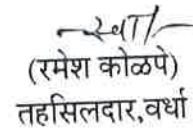 (रमेश कोळपे)
तहसिलदार,वर्धा